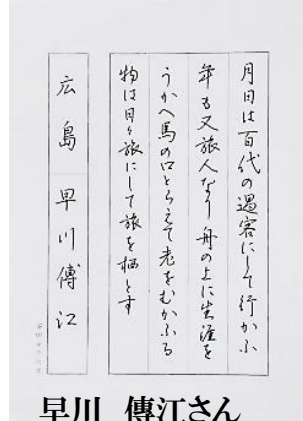 月日は百代の過客にして行かふ
年も又旅人なり舟の上に生涯を
うかへ馬の口とらえて老をむかふる
物は日々旅にして旅を栖とす
広島 早川傳江
早川 傳江さん